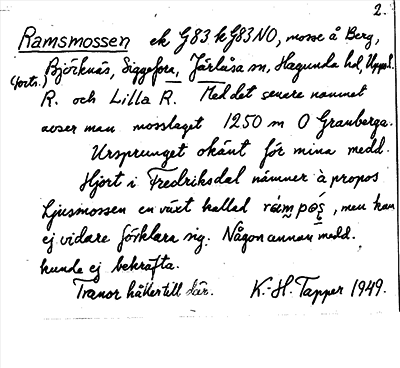 2.
Ramsmossen ek G83 k G83NO, mosse å Berg,
(forts. Björknäs, Siggefora, Järlåsa sn, Hagunda hd, Uppsl.
R. och Lilla R. Med det senare namnet
avser man mosslaget 1250 m O Granberga.
Ursprunget okänt för mina medd.
Hjort i Fredriksdal nämner à propos
Ljusmossen en växt kallad, men kan
ej vidare förklara sig. Någon annan medd.
kunde ej bekräfta.
Tranor håller till där. K.-H. Tapper 1949.